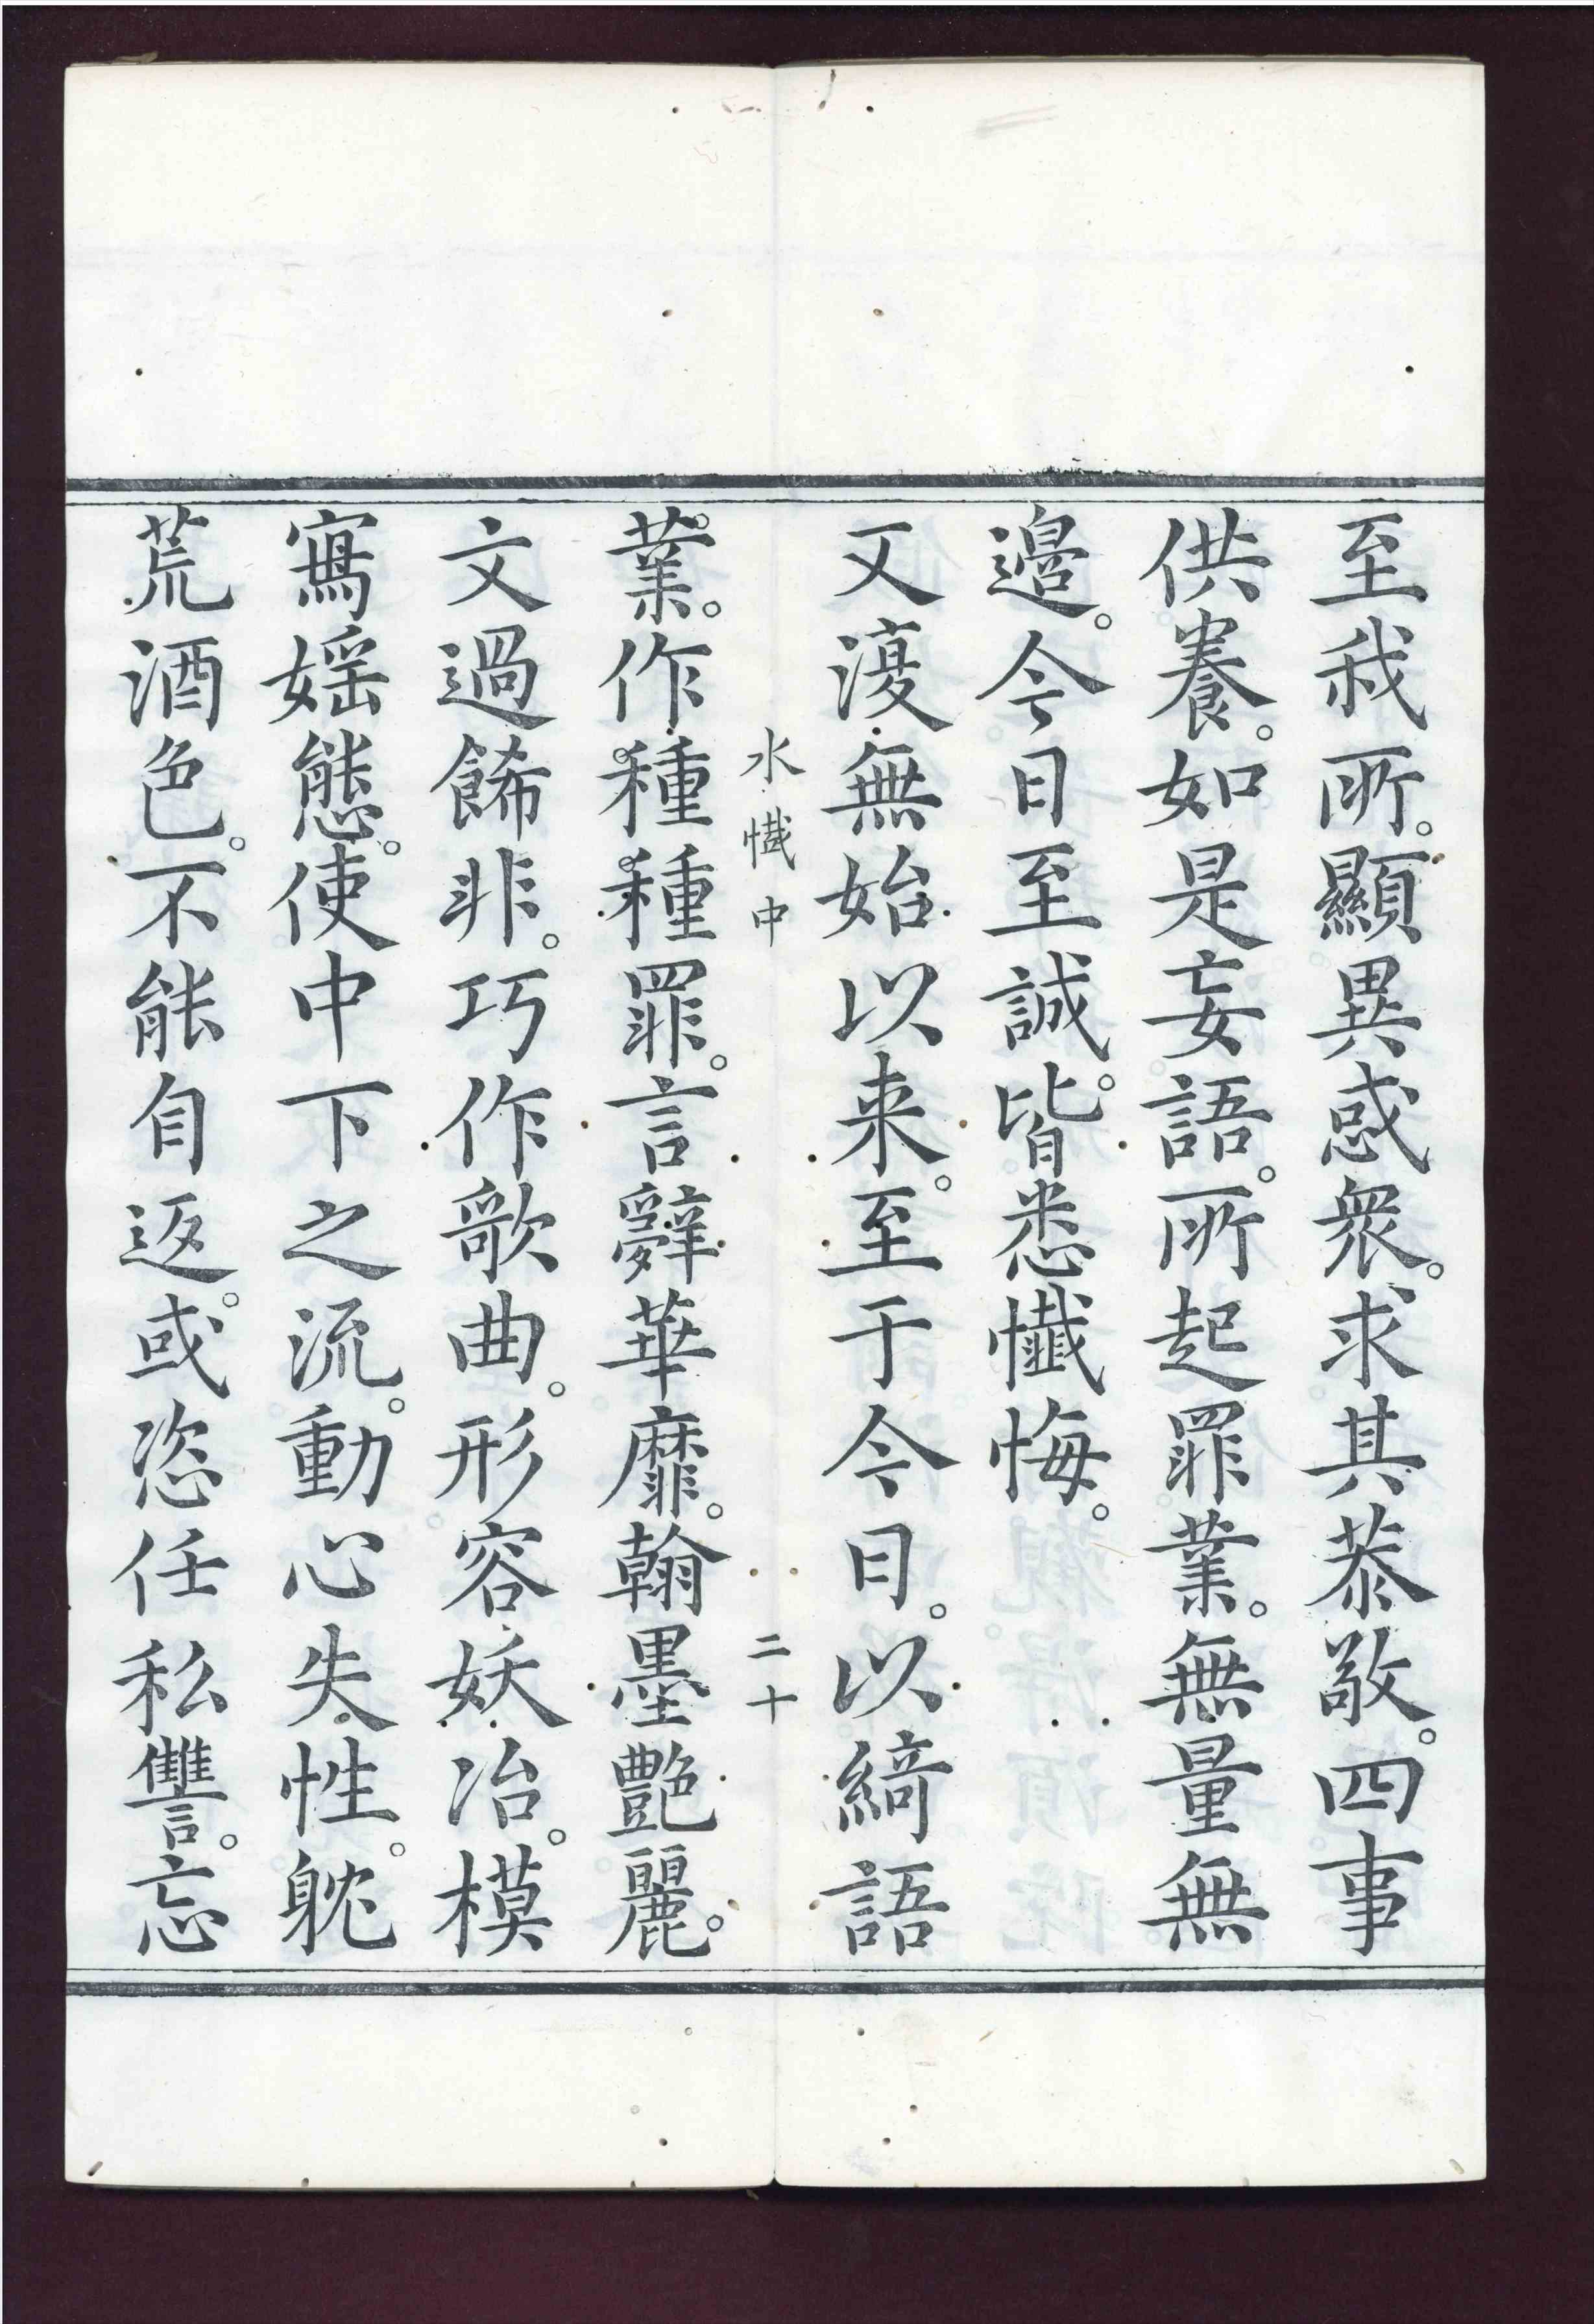 至我所。顯異惑衆。求其恭敬。四事
供養。如是妄語。所起罪業。無量無
邊。今日至誠。皆悉懺悔。
又復無始以来。至于今日。以綺語
水懺中 二十
業。作種種罪。言辭華靡。翰墨艶麗。
文過餙非。巧作歌曲。形容妖冶。模
寫婬態。使中下之流。動心失性。躭
荒酒色。不能自返。或恣任私讐。忘